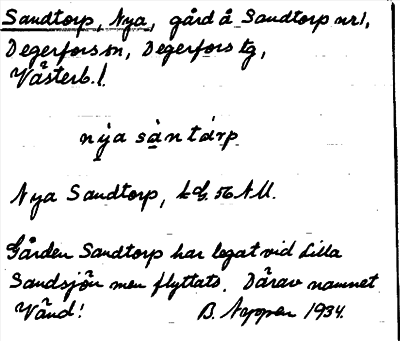 Sandtorp, Nya, gård å Sandtorp nr 1,
Degerfors sn, Degerfors tg,
Västerb. l.
nya sàntárp
Nya Sandtorp, 56 NU.
Gården Sandtorp har legat vid Lilla
Sandsjön men flyttats. Därav namnet
Vänd! B. Nyman 1934.